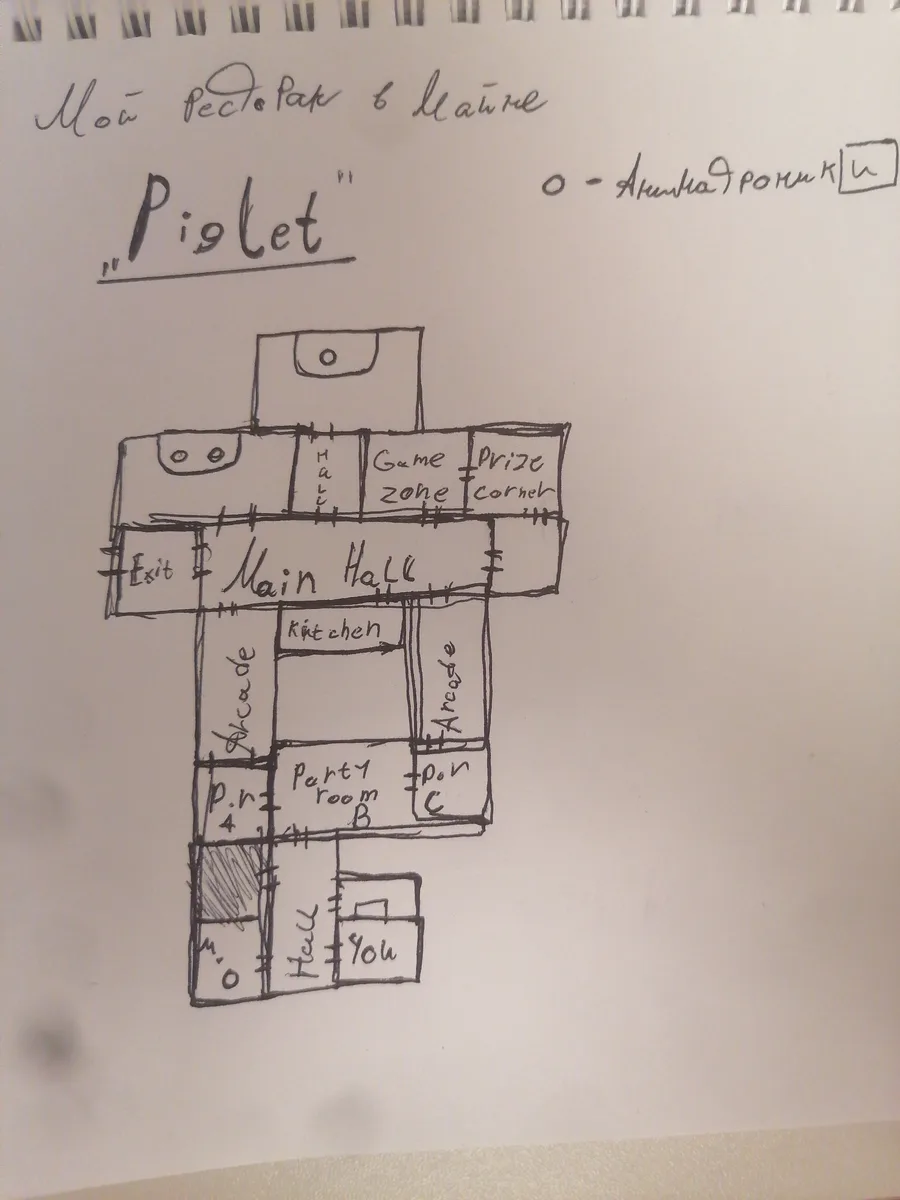 Мой ресторан в Майне
"Piglet"
о - Аниматроник и
Hall
Game zone
Prize corner
Exit
Main Hall
Kitchen
Arcade
Arcade
P.r A
Party room B
P.r C
Hall
You